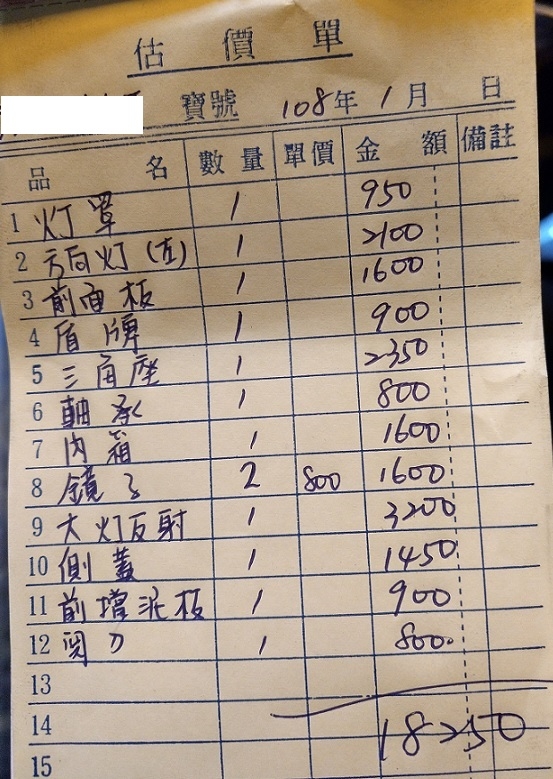 估價單
寶號 108年 1月 日
品名 數量 單價 金額 備註
1 灯罩 1 950
2 方向灯(左) 1 2100
3 前面板 1 1600
4 盾牌 1 900
5 三角座 1 2350
6 軸承 1 800
7 內箱 1 1600
8 鏡子 2 800 1600
9 大灯反射 1 3200
10 側蓋 1 1450
11 前擋泥板 1 900
12 開刀 1 800
13
14 18250
15